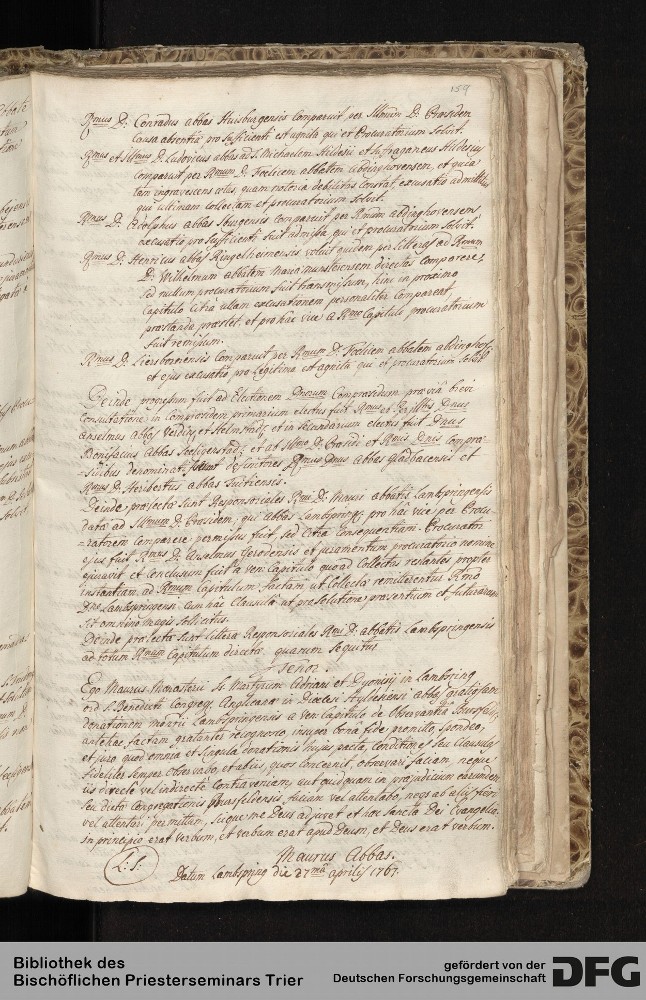 159
Rmus D: Conradus abbas Huisburgensis Comparuit per Illmum D: Praesidem
Causa absentiae pro sufficienti est agnita qui et Procuratorium Solvit.
Rmus et Illmus D. Ludovicus abbas ad S. Michaelem Hildesii et suffraganeus Hildesien
Comparuit per Rmum D. Foelicem abbatem abdinghovensem, et quia
tam ingravescens aetas, quam notoria debilitas Constat, excusatio admittitur
qui ultimam Collectam et procuratorium Solvit.
Rmus D: Adolphus abbas Iburgensis Comparuit per Rmum abdinghovensem
excusatio pro sufficienti fuit admissa, qui et procuratorium Solvit.
Rmus D: Henricus abbas Ringelheimensis voluit quidem per litteras ad Rmum
D: Wilhelmum abbatem maurimunsterensem directas Comparere,
sed nullum procuratorium fuit transmissum, hinc in proximo
Capitulo Citra ullam excusationem personaliter Comparent,
praestanda praestet, et pro hac vice a Rmo Capitulo procuratorium
fuit remissum.
Rmus D: Liesborniensis Comparuit per Rmum D: Foelicem abbatem abdinghov:
et ejus excusatio pro legitima est agnita qui et procuratorium Solvit
Deinde progressum fuit ad Electionem Dnorum Compraesidum praevia brevi
Consultatione in Compraesidem primarium electus fuit Rmus et Perillris Dnus
anselmus abbas Verdin: et Helmstad: et in secundarium electus fuit Dnus
Bonifacius abbas Seeligenstad: et ab Illmo D: Praesidi et Rmis Dnis Compra-
=sidibus denominati fuerunt definitores Rmus Dnus abbas gladbacensis et
Rmus D: Heribertus abbas Tuitiensis.
Deinde praelectae sunt Responsoriales Rmi D: Mauri abbatis Lambspringensis
datae ad Illmum D: Praesidem, qui abbas Lambspring: pro hac vice per Procu-
=ratorem Comparere permissus fuit, sed Citra Consequentiam. Procurator
ejus fuit Rmus D: Anselmus Gerodensis et juramentum procuratorio nomine
ejuravit et Conclusum fuit a ven: Capitulo quoad Collectas restantes propter
instantiam ad Rmum Capitulum factam ut Collectae remitterentur Rmo
Dno Lambspringensi cum hac Clausula ut pro Solutione praesentium et futurarum
sit omnino magis sollicitus.
Deinde praelectae sunt litterae Responsoriales Rmi D: abbatis Lambspringensis
ad totum Rmum Capitulum directae quarum sequitur
Tenor.
Ego Maurus Monasterii Ss. Martyrum Adriani et Dyonisij in Lambspring
ord. S. Benedicti Congreg: Anglicanae in Dioecesi Hyldesiensi abbas gratiosam
donationem mrii Lambspringensis a ven: Capitulo de Observantia Bursfeld:
antehac factam gratanter recognosco, insuper bona fide promitto, spondeo,
et juro quod omnia et singula donationis hujus pacta, Conditiones seu Clausulas
fideliter semper observabo, et ab iis, quos Concernit, observari faciam, neque
iis directe vel indirecte Contraveniam, aut quidquam in praejudicium earundem
seu dictae Congregationis Bursfeldensis faciam vel attentabo, neque ab aliis fieri
vel attentari permittam, sicque me Deus adjuvet et haec sancta Dei Evangelia.
in principio erat verbum, et verbum erat apud Deum, et Deus erat verbum.
Maurus Abbas.
L: S:
Datum Lambspring die 27ma aprilis 1767.
Bibliothek des
Bischöflichen Priesterseminars Trier
gefördert von der
Deutschen Forschungsgemeinschaft
DFG